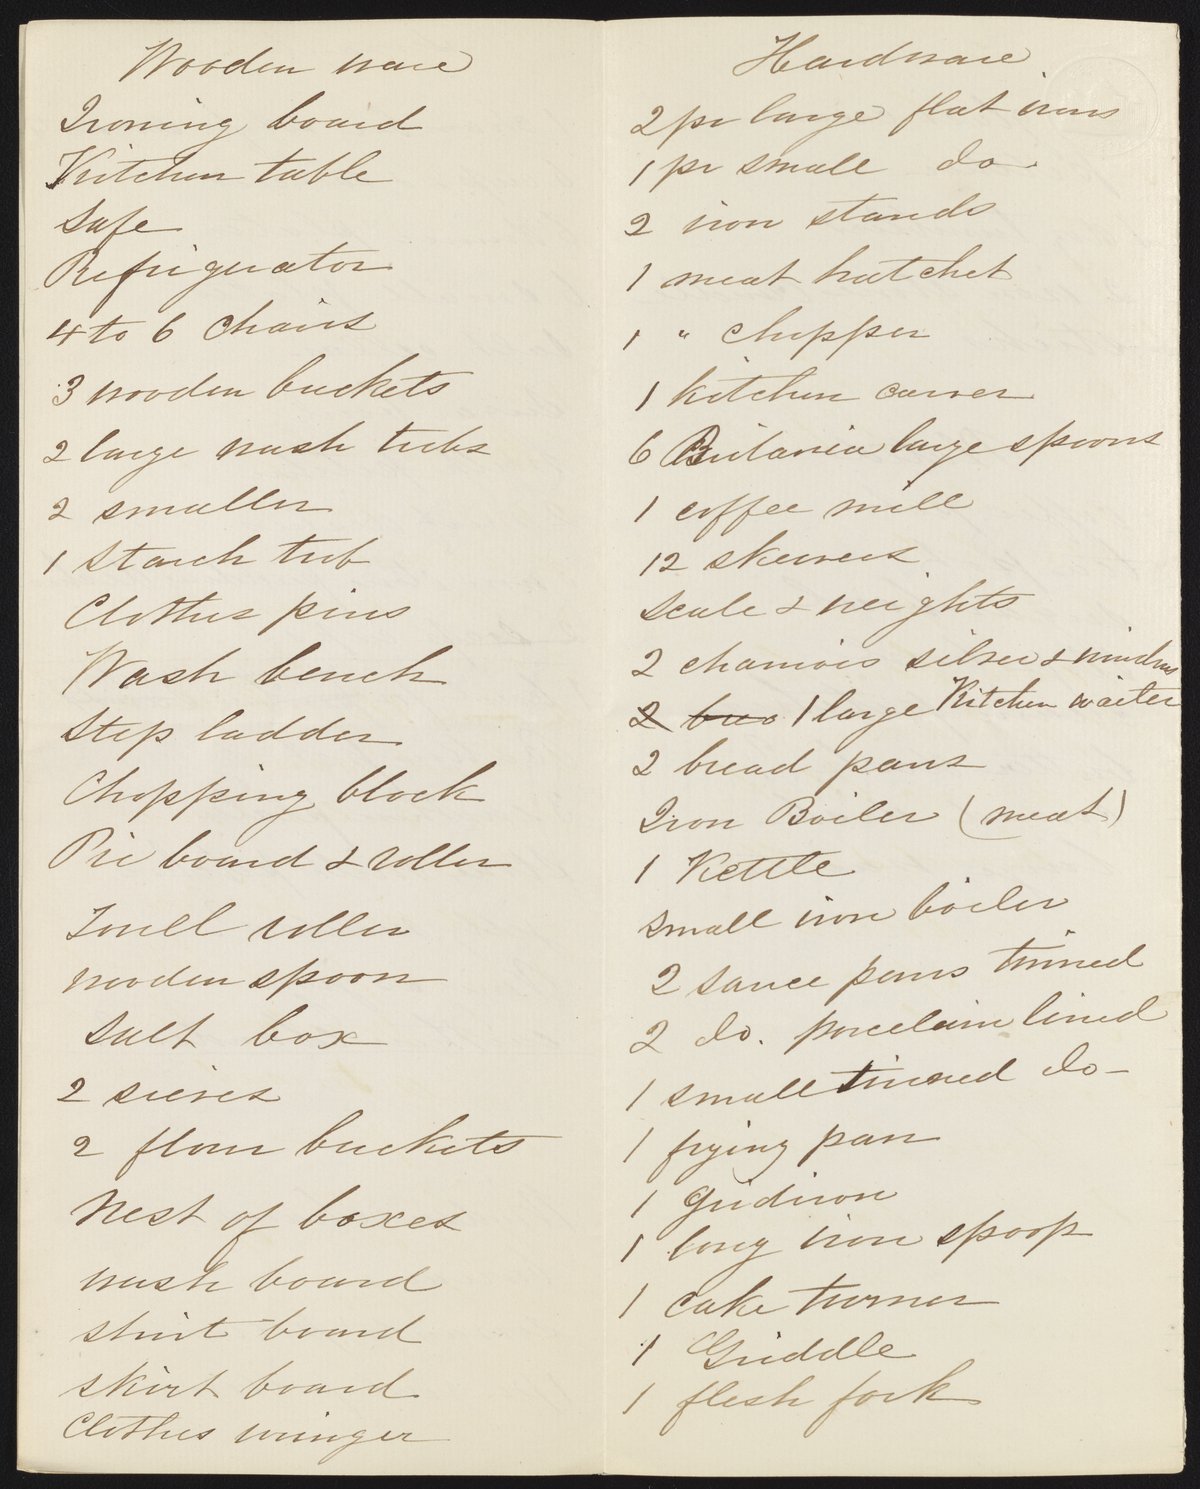 Wooden ware
Ironing board
Kitchen table
Safe
Refrigerator
4 to 6 Chairs
3 wooden buckets
2 large wash tubs
2 smaller
1 Starch tub
Clothes pins
Wash bench
Step ladder
Chopping block
Pie board & roller
Towell roller
wooden spoon
Salt box
2 sieves
2 flour buckets
Nest of boxes
wash board
shirt board
skirt board
Clothes wringer
Hardware
2 pr large flat irons
1 pr small do
2 iron stands
1 meat hatchet
1 " chopper
1 kitchen carver
6 Britania large spoons
1 coffee mill
12 skewers
Scale & weights
2 chamois silver & windows
2 1 large Kitchen waiter
2 bread pans
Iron Boiler (meat)
1 Kettle
small iron boiler
2 sauce pans tinned
2 do. porcelain lined
1 small tinned do-
1 frying pan
1 gridiron
1 long iron spoop
1 cake turner
1 Griddle
1 flesh fork